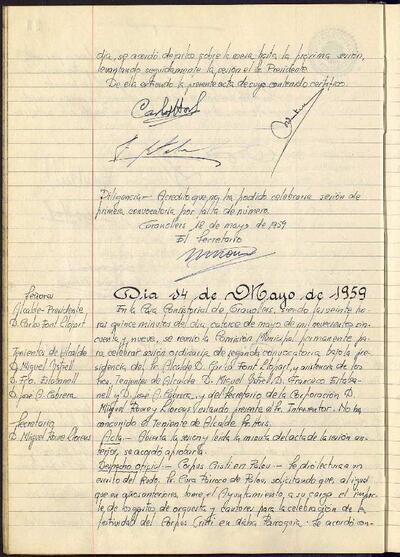 día, se acordó dejarlo sobre la mesa hasta la próxima sesión,
levantando seguidamente la sesión el Sr. Presidente.
De ella extiendo la presente acta de cuyo contenido certifico.
Diligencia.- Acredito que no ha podido celebrarse sesión de
primera convocatoria por falta de número.
Granollers 12 de mayo de 1959
El Secretario
Día 14 de Mayo de 1959
Señores
Alcalde-Presidente
D. Carlos Font Llopart
Tenientes de Alcalde
D. Miguel Ysñell
D. Fco. Estabanell
D. José A. Cabrera
Secretario
D. Miguel Llorens
En la Casa Consistorial de Granollers, siendo las veinte ho-
ras quince minutos del día catorce de mayo de mil novecientos cin-
cuenta y nueve, se reunió la Comisión Municipal permanente pa-
ra celebrar sesión ordinaria de segunda convocatoria bajo la pre-
sidencia del Sr. Alcalde D. Carlos Font Llopart, y asistencia de los
Sres. Tenientes de Alcalde D. Miguel Ysñell D. Francisco Estaba-
nell y D. José A. Cabrera, y del Secretario de la Corporación D.
Miguel y Llorens estando presente el Sr. Interventor. No ha
concurrido el Teniente de Alcalde Sr.
Acta.- Abierta la sesión y leída la minuta del acta de la sesión an-
terior, se acordó aprobarla.
Despacho oficial.- Corpus Cristi en Palou.- Se dio lectura a un
escrito del Rvdo. Sr. Cura Párroco de Palou, solicitando que, al igual
que en años anteriores, tome el Ayuntamiento a su cargo el impor-
te de los gastos de orquesta y cantores para la celebración de la
festividad del Corpus Cristi en dicha Parroquia. Se acordó con-